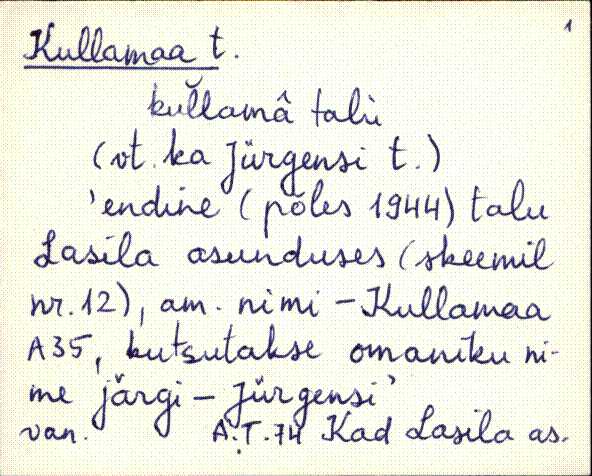 1
Kullamaa t.
kul̆lamâ talù
(vt. ka Jürgensi t.)
'endine (põles 1944) talu
Lasila asunduses (skeemil
nr. 12), am. nimi - Kullamaa
A35, kutsutakse omaniku ni-
me järgi - Jürgensi'
van. A.T. 74 Kad Lasila as.